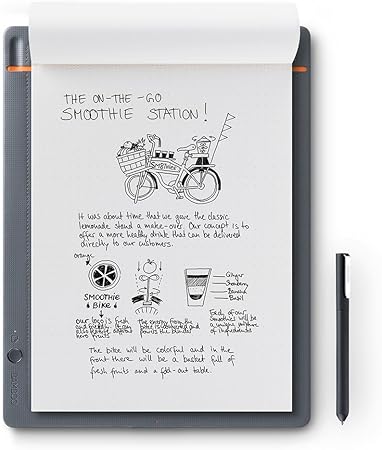 THE ON-THE-GO
SMOOTHIE STATION!
Smoothies
It was about time that we gave the classic
lemonade stand a make-over. Our concept is to
offer a more healthy drink that can be delivered
directly to our customers.
orange
SMOOTHIE
BIKE
our logo is fresh
and friendly. It can
also feature different
hero fruits
The energy from the
bike is converted and
powers the blender
Ginger
Strawberry
Banana
Basil
Each of our
Smoothies will be
a unique mixture
of ingredients
The bike will be colorful and in the
front there will be a basket full of
fresh fruits and a fold-out table.